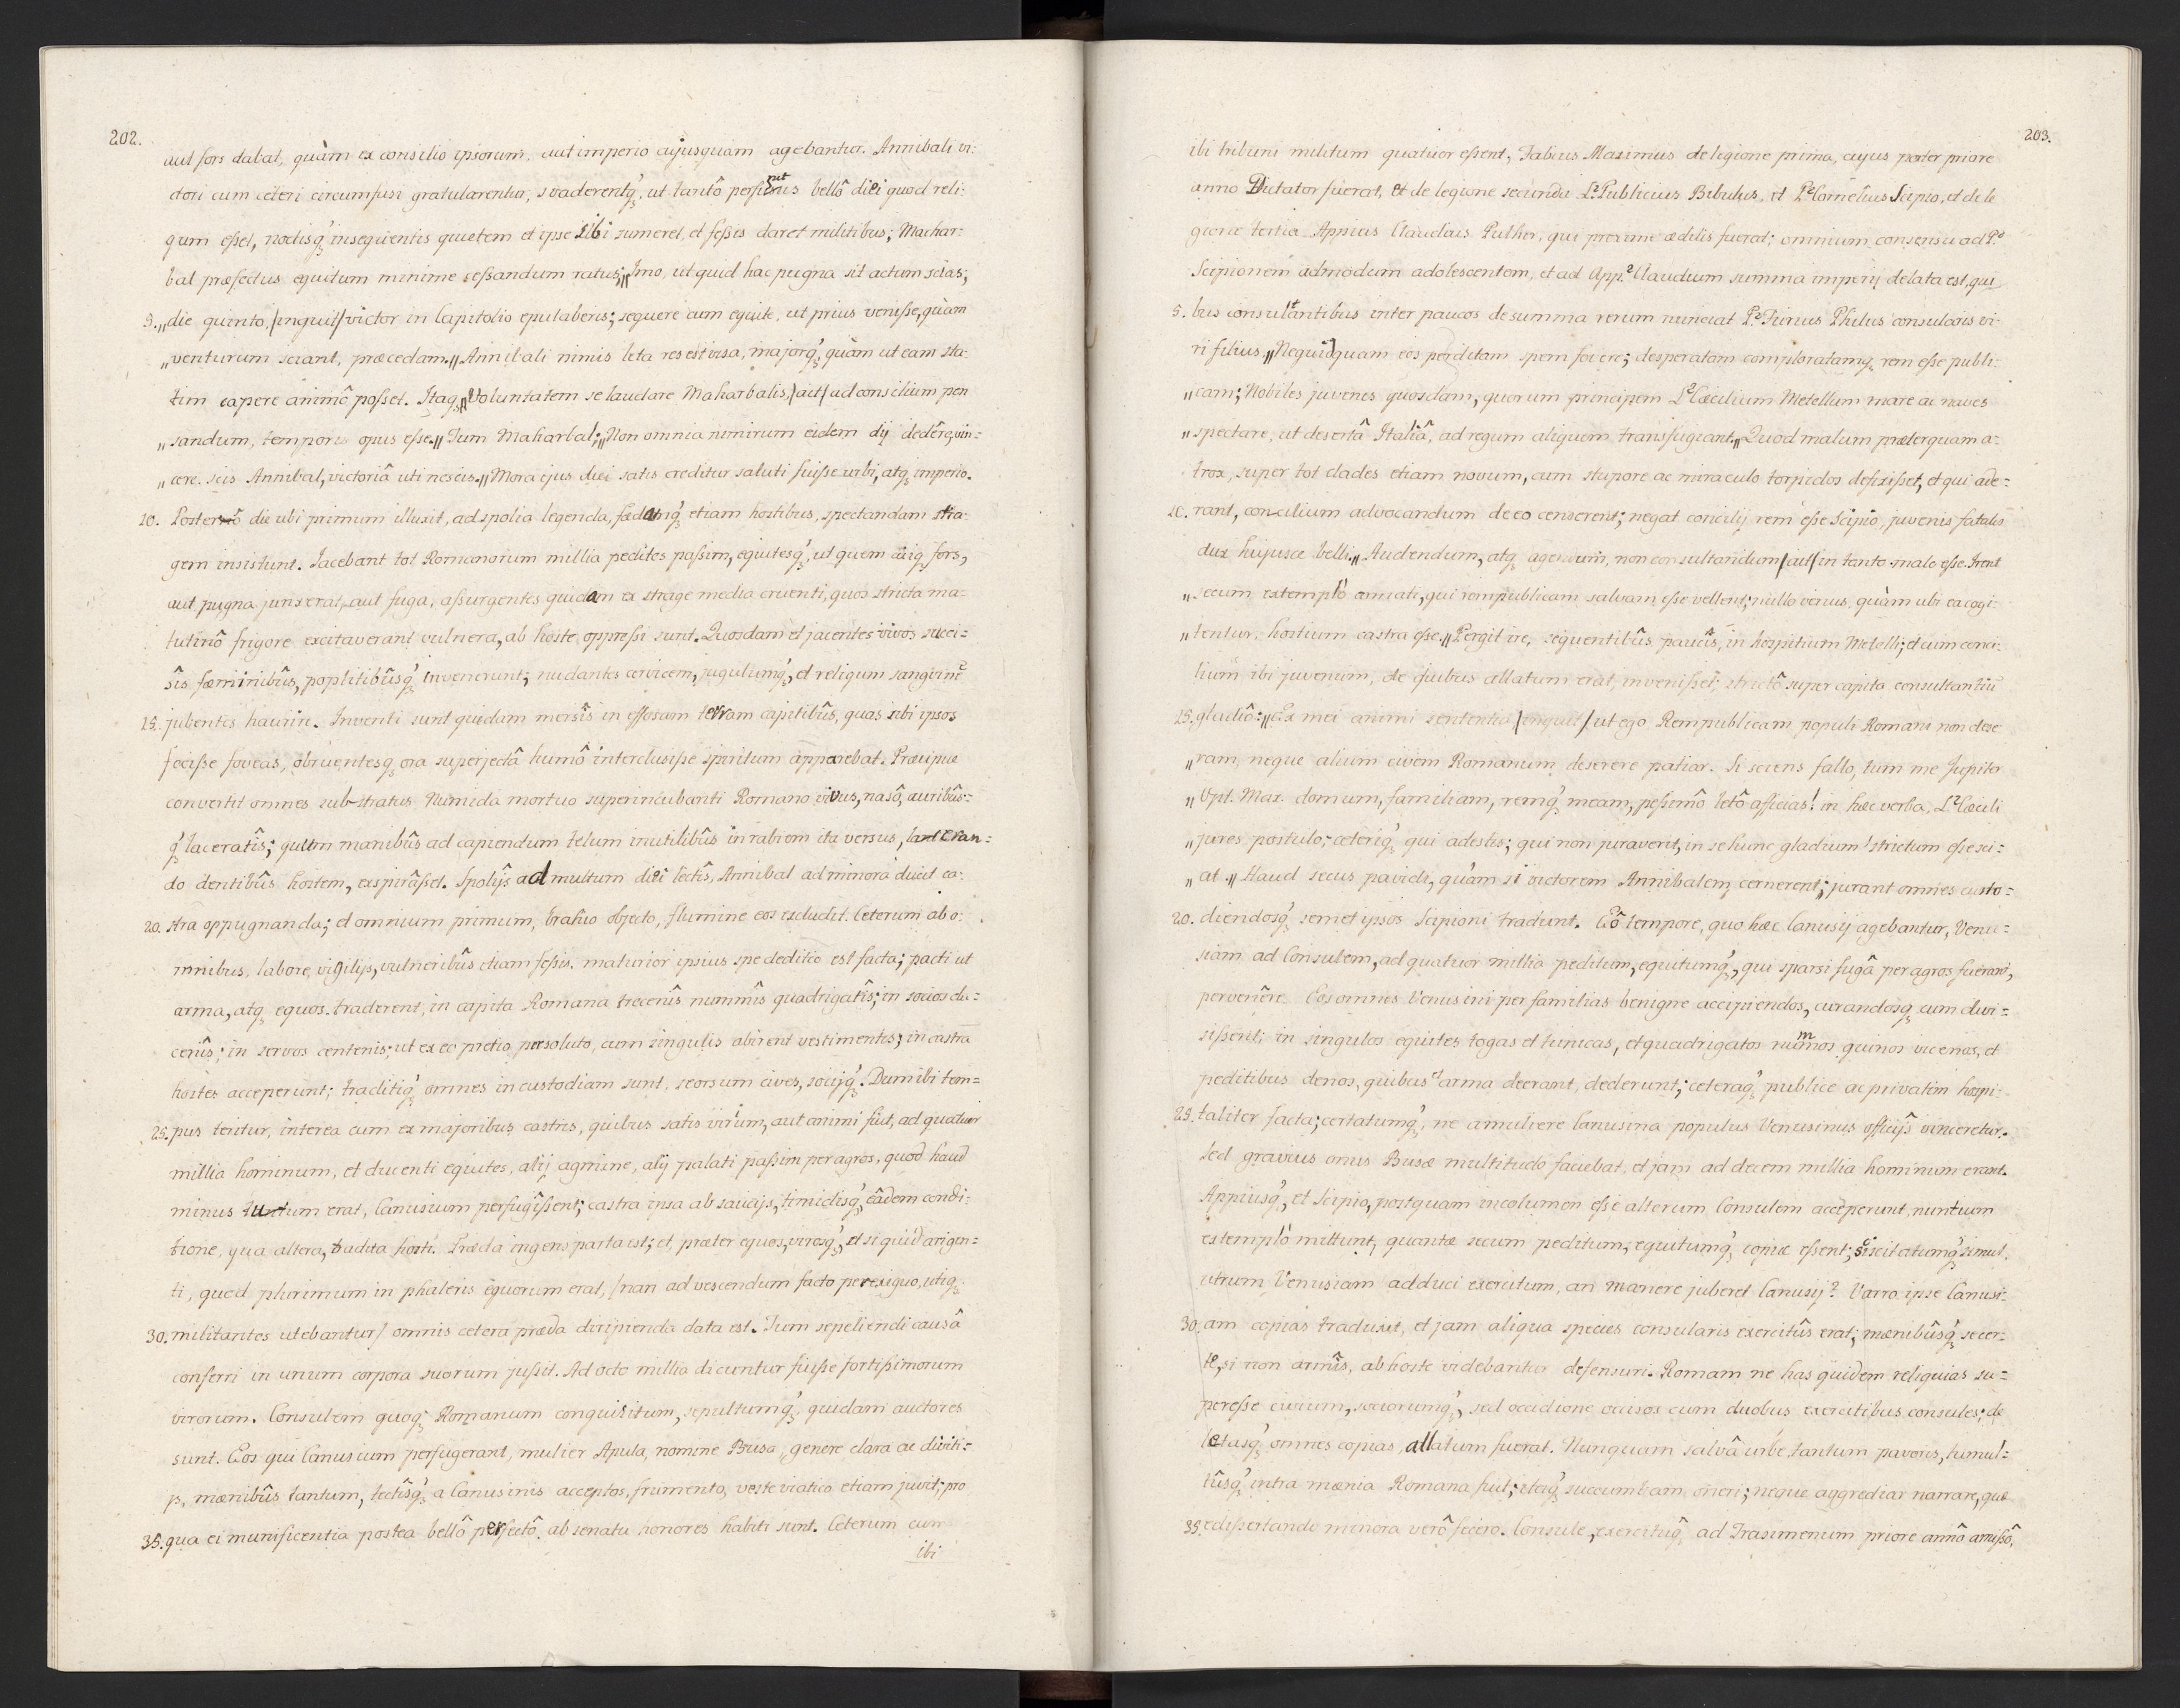 202.
aut fors dabat, quàm ex consilio ipsorum, aut imperio cujusquam agebantur. Annibali vi:
ctori cum ceteri circumfusi gratularentur, svaderentq́ꝫ, ut tantô perfunctus bellô diei quod reli:
quum eßet, noctisq́ꝫ insequentis quietem et ipse sibi sumeret, et feßis daret militibus; Mahar:
bal præfectus equitum minime ceßandum ratus; „Imo, ut quid hac pugna sit actum scias;
5. „die quinto, /inquit/ victor in Capitolio epulaberis; sequere cum equite, ut prius venisse, quàm
„venturum sciant, præcedam. „ Annibali nimis læta res est visa, majorq́ꝫ, quàm ut eam sta:
tim capere animô poßet. Itaqꝫ „Voluntatem se laudare Maharbalis, /ait/ ad consilium pen
„sandum, temporis opus eße. „ Tum Maharbal; „Non omnia nimirum eidem dij dedêre, vin=
„cere scis Annibal, victoriâ uti nescis. „ Mora ejus diei satis creditur saluti fuiße urbi, atqꝫ imperio.
10. Posterô die ubi primum illuxit, ad spolia legenda, fœdamq́ꝫ etiam hostibus, spectandam stra:
gem insistunt. Jacebant tot Romanorum millia pedites paßim, equitesq́ꝫ, ut quem cuiqꝫ fors,
aut pugna junxerat, aut fuga, aßurgentes quidam ex strage media cruenti, quos stricta ma=
tutinô frigore excitaverant vulnera, ab hoste oppreßi sunt. Quosdam et jacentes vivos succi=
sîs fœminibûs, poplitibûsq́ꝫ invenerunt; nudantes cervicem, jugulumq́ꝫ, et reliqum sangvinē
15. jubentes haurire. Inventi sunt quidam mersîs in effosam terram capitibûs, quas sibi ipsos
feciße foveas, obruentesqꝫ ora superjectâ humô interclusiße spiritum apparebat. Præcipue
convertit omnes sub-stratus Numida mortuo superincubanti Romano vivus, nasô, auribûs=
q́ꝫ laceratîs; quum manibûs ad capiendum telum inutilibûs in rabiem ita versus, laniean=
do dentibûs hostem, exspirâßet. Spolijs ad multum diei lectîs, Annibal ad minora ducit ca:
20. stra oppugnanda; et omnium primum, brahio objecto, flumine eos excludit. Ceterum ab o:
mnibus, labore, vigilijs, vulneribûs etiam feßis, maturior ipsius spe deditio est facta; pacti ut
arma, atqꝫ equos traderent, in capita Romana trecenîs nummîs quadrigatîs; in socios du=
cenîs; in servos centenis; ut ex eo pretio persoluto, cum singulis abirent vestimentis; in castra
hostes acceperunt; traditiq́ꝫ omnes in custodiam sunt, seorsum cives, socijq́ꝫ. Dum ibi tem=
25. pus teritur, interea cum ex majoribus castris, quibus satis virium, aut animi fuit, ad quatuor
millia hominum, et ducenti equites, alij agmine, alij palati paßim per agros, quod haud
minus tutum erat, Canusium perfugißent; castra ipsa ab saucijs, timidisq́ꝫ, eâdem condi:
tione, qua altera, tradita hosti. Præda ingens parta est; et, præter equos, virosq́ꝫ, et si quid argen=
ti, quod plurimum in phaleris equorum erat, /nan ad vescendum facto perexiguo, utiqꝫ
30. militantes utebantur/ omnis cetera præda diripienda data est. Tum sepeliendi causâ
conferri in unum corpora suorum jußit. Ad octo millia dicuntur fuiße fortißimorum
virorum. Consulem quoqꝫ Romanum conquisitum, sepultumq́ꝫ, quidam auctores
sunt. Eos qui Canusium perfugerant, mulier Apula, nomine Busa, genere clara ac diviti=
js, mœnibûs tantum, tectîsq́ꝫ a Canusinis acceptos, frumento, veste viatico etiam juvit; pro
35. qua ei munificentia postea bellô perfectô, ab senatu honores habiti sunt. Ceterum cum
ibi
203.
ibi tribuni militum quatuor eßent, Fabius Maximus de legione prima, cujus pater priore
anno Dictator fuerat, et de legione secunda L.º Publicius Bibulus, et P.º Cornelius Scipio, et de le
gione tertia Appius Claudius Pulher, qui proxime ædilis fuerat; omnium consensu ad P.º
Scipionem admodum adolescentem, et ad App.º Claudium summa imperij delata est, qui
5. bus consultantibus inter paucos de summa rerum nunciat P.º Furius Philus consularis vi=
ri filius „Nequidquam eos perditam spem fovere; desperatam comploratamqꝫ rem eße publi:
„cam; Nobiles juvenes quosdam, quorum principem L.º Cæcilium Metellum mare ac naves
„spectare, ut desertâ Italiâ, ad regum aliquem transfugiant. „ Quod malum præterquam a=
trox, super tot clades etiam novum, cum stupore ac miraculo torpidos defixißet, et qui ade=
10. rant, concilium advocandum de eo censerent; negat concilij rem eße Scipio, juvenis fatalis
dux hujusce belli. „ Audendum, atqꝫ agendum, non consultandum /ait/ in tanto malo eße. Irent
„secum extemplô armati, qui rempublicam salvam eße vellent; nullo verius, quàm ubi ea cogi:
„tentur, hostium castra eße. „ Pergit ire, sequentibûs paucîs, in hospitium Metelli; et cum conci=
lium ibi juvenum, de quibus allatum erat, invenißet; strictô super capita consultantiū
15. gladiô: „Ex mei animi sententia /inquit/ ut ego Rempublicam populi Romani non dese
„ram, neque alium civem Romanum deserere patiar. Si sciens fallo, tum me Jupiter
„Opt. Max. domum, familiam, remq́ꝫ meam, peßimô letô afficias! in hæc verba, L.º Cæcili
„jures postulo; ceteriq́ꝫ qui adestis; qui non juraverit, in se hunc gladium strictum eße sci=
„at. „ Haud secus pavidi, quàm si victorem Annibalem cernerent; jurant omnes custo=
20. diendosq́ꝫ semet ipsos Scipioni tradunt. Eô tempore, quo hæc Canusij agebantur, Venu=
siam ad Consulem, ad quatuor millia peditum, equitumq́ꝫ, qui sparsi fugâ per agros fuerant,
pervenêre. Eos omnes Venusini per familias benigne accipiendos, curandosqꝫ cum divi=
sißent; in singulos equites togas et tunicas, et quadrigatos nummos quinos vicenos, et
peditibus denos, quibus et arma deerant, dederunt; ceteraq́ꝫ publice ac privatim hospi=
25. taliter facta; certatumq́ꝫ, ne a muliere Canusina populus Venusinus officijs vinceretur.
Sed gravius onus Busæ multitudo faciebat, et jam ad decem millia hominum erant.
Appiusq́ꝫ, et Scipio, postquam incolumen eße alterum Consulem acceperunt, nuntium
extemplô mittunt, quantæ secum peditum, equitumq́ꝫ copiæ eßent; sciscitatumq́ꝫ simul,
utrum Venusiam adduci exercitum, an manere juberet Canusij? Varro ipse Canusi=
30. am copias traduxit, et jam aliqua species consularis exercitûs erat; mœnibûsq́ꝫ se cer=
te, si non armîs, ab hoste videbantur defensuri. Romam ne has quidem reliquias su=
pereße civium, sociorumq́ꝫ, sed occidione occisos cum duobus exercitibus consules; de
letasq́ꝫ omnes copias, allatum fuerat. Nunquam salvâ urbe, tantum pavoris, tumul=
tûsq́ꝫ intra mœnia Romana fuit; itaq́ꝫ succumbam oneri; neque aggrediar narrare, quæ
35. edißertando minora verô fecero. Consule, exercituq́ꝫ ad Trasimenum priore annô amißô,